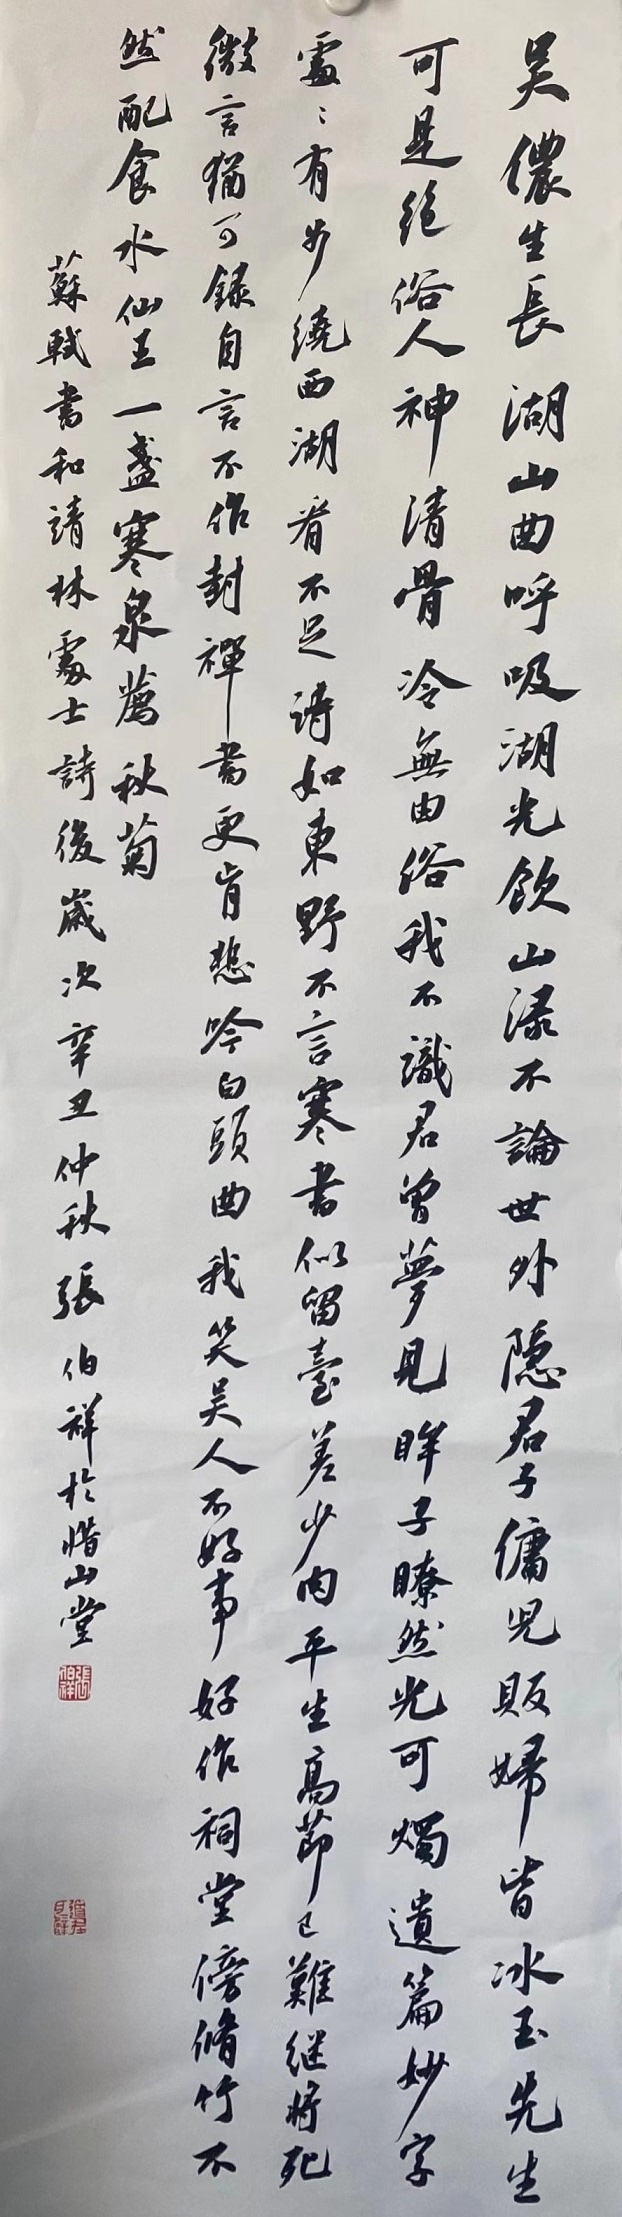 吴儂生長湖山曲呼吸湖光飲山渌不論世外隱君子傭児販婦皆冰玉先生
可是絶俗人神清骨冷無由俗我不識君曾夢見眸子瞭然光可燭遺篇妙字
處〻有步繞西湖看不足詩如東野不言寒書似留臺差少肉平生高節已難継將死
微言猶可録自言不作封禪書更肯悲吟白頭曲我笑吴人不好事好作祠堂傍脩竹不
然配食水仙王一盞寒泉薦秋菊
蘇軾書和靖林處士詩後歲次辛丑仲秋張伯祥於惜山堂
張伯祥